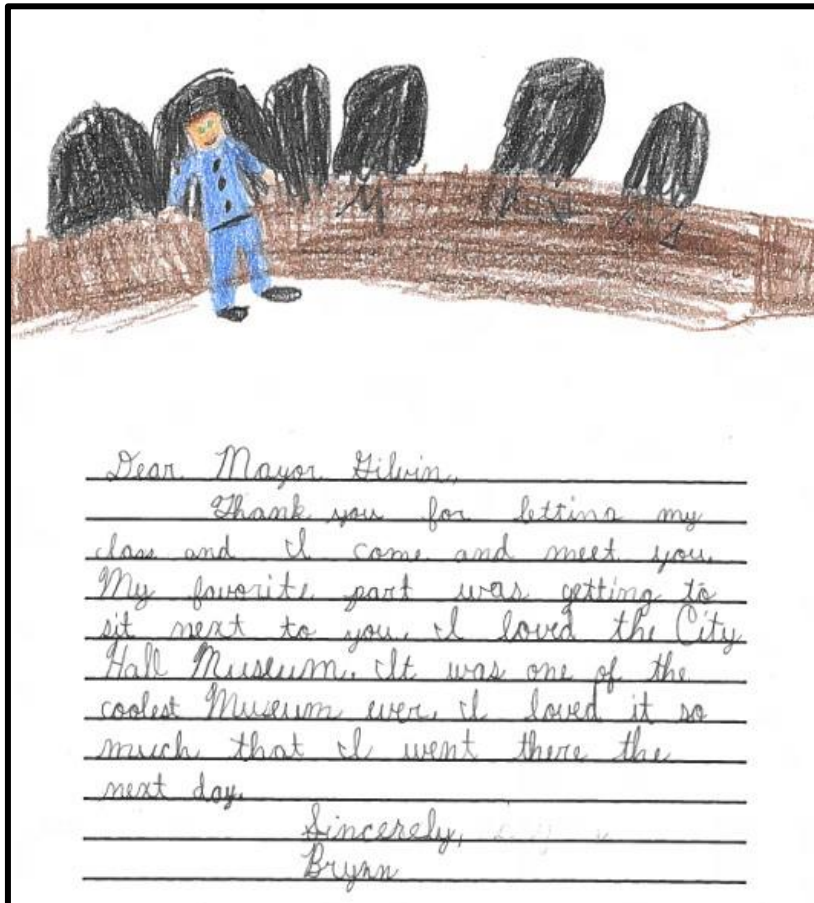 Dear Mayor Gilvin,
Thank you for letting my
class and I come and meet you.
My favorite part was getting to
sit next to you. I loved the City
Hall Museum. It was one of the
coolest Museum ever. I loved it so
much that I went there the
next day.
Sincerely,
Brynn